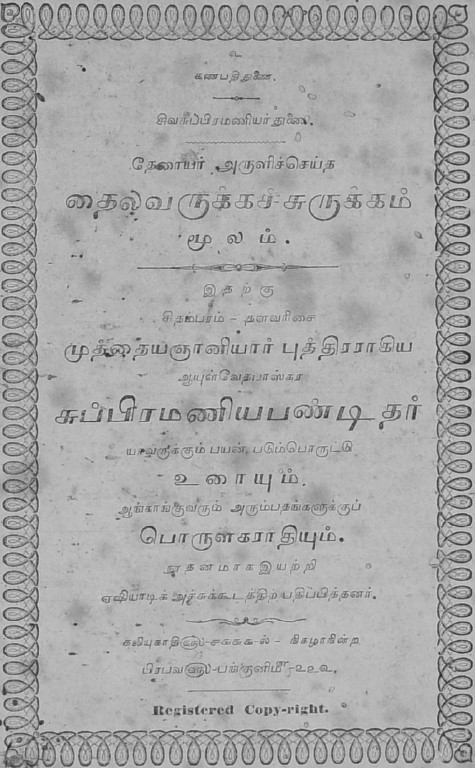 உ
கணபதிதுணை.
சிவசுப்பிரமணியர் துணை.
தேரையர் அருளிச்செய்த
தைலவருக்கச்சுருக்கம்
மூலம்.
இதற்கு
சிதம்பரம் - தளவரிசை
முத்தையஞானியார் புத்திரராகிய
ஆயுள்வேதபாஸ்கர
சுப்பிரமணியபண்டிதர்
யாவருக்கும் பயன்படும்பொருட்டு
உரையும்,
ஆங்காங்குவரும் அரும்பதங்களுக்குப்
பொருளகராதியும்.
நூதனமாகஇயற்றி
ஏஷியாடிக் அச்சுக்கூடத்திற் பதிப்பித்தனர்.
நிகழாநின்ற
பிரபவ௵-பங்குனி௴-
Registered Copy-right.